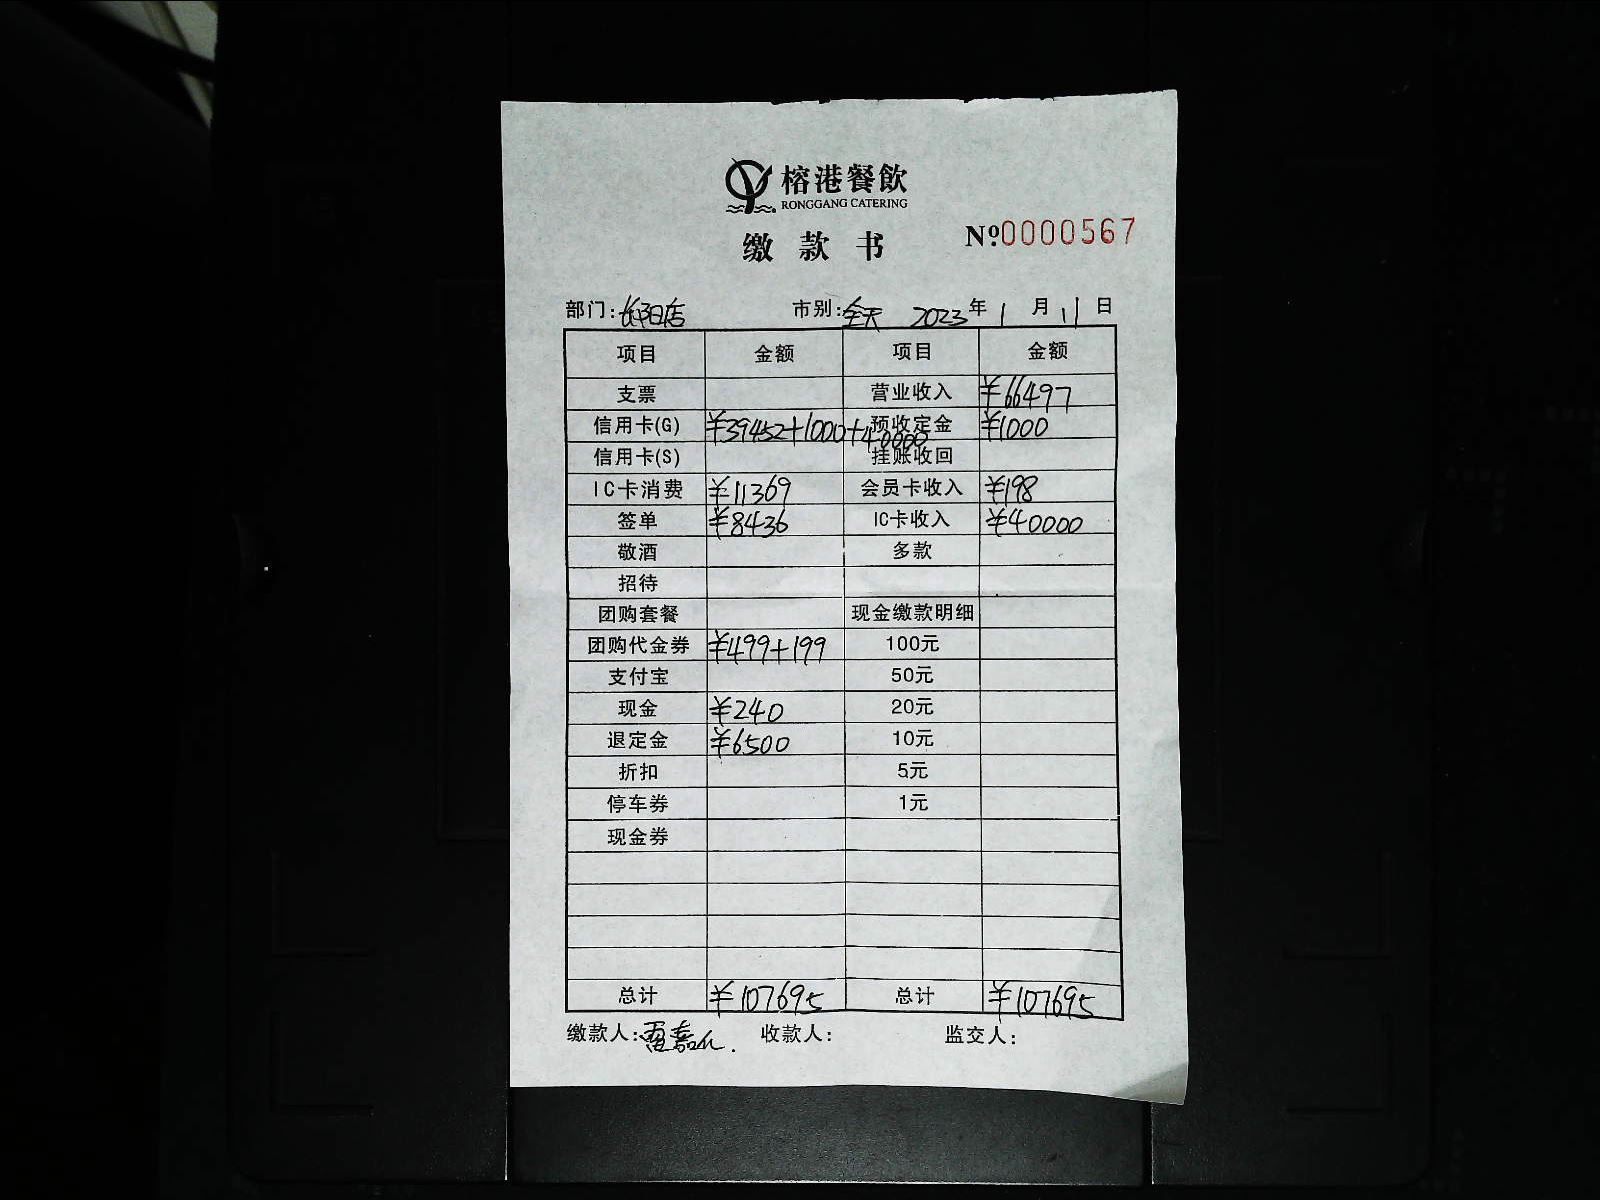 榕港餐飲
RONGGANG CATERING
缴款书 Nº:0000567
部门:长阳店 市别:全天 2023年1月11日
项目 金额 项目 金额
支票 营业收入 ¥66497
信用卡(G) ¥39452+1000+40000 预收定金 ¥1000
信用卡(S) 挂账收回
IC卡消费 ¥11369 会员卡收入 ¥198
签单 ¥8436 IC卡收入 ¥40000
敬酒 多款
招待
团购套餐 现金缴款明细
团购代金券 ¥499+199 100元
支付宝 50元
现金 ¥240 20元
退定金 ¥6500 10元
折扣 5元
停车券 1元
现金券
总计 ¥107695 总计 ¥107695
缴款人: 收款人: 监交人: